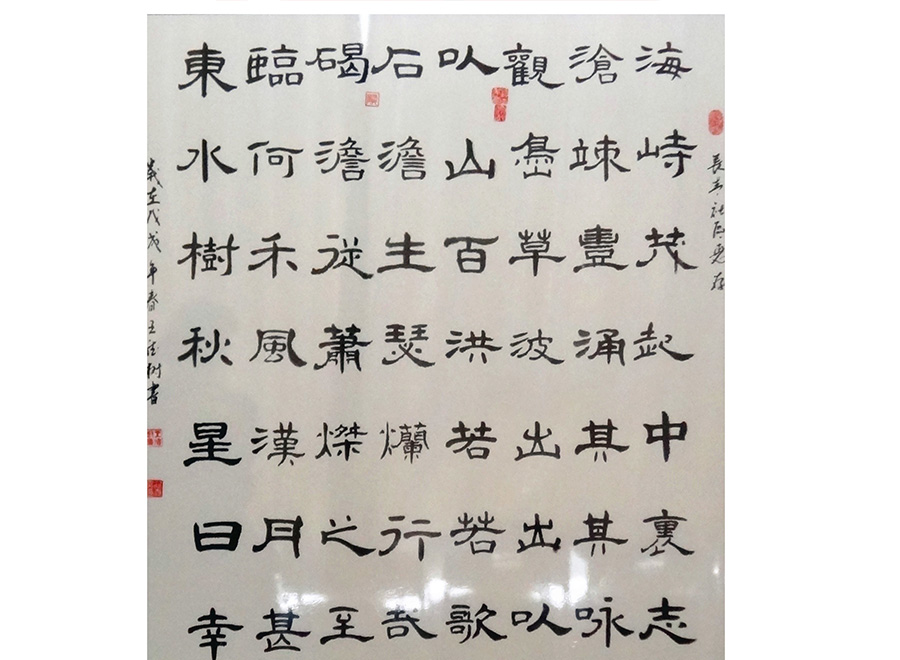 長青社区惠存
東臨碣石以觀滄海
水何澹澹山島竦峙
樹禾從生百草豊茂
秋風蕭瑟洪波涌起
星漢燦爛若出其中
日月之行若出其裏
幸甚至哉歌以咏志
歲在戊戌年春王树書